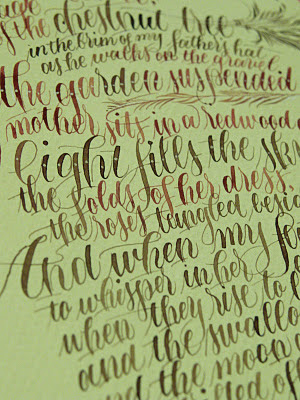 of the chestnut tree
in the brim of my father's hat
as he walks on the gravel
the garden suspended
mother sits in a redwood
Light fills the sky
the folds of her dress
the roses tangled besid
And when my
to whisper in her
when they rise to
and the swallo
and the moon